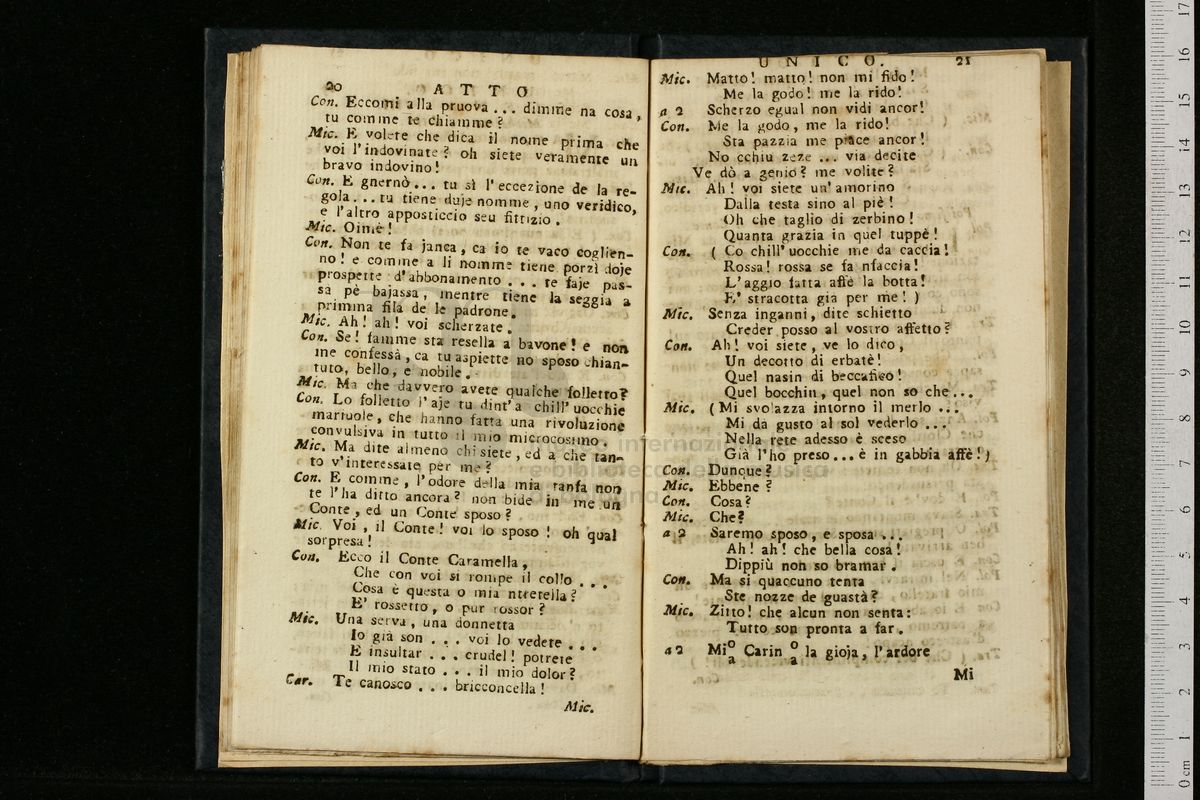 20
ATTO
Con. Eccomi alla pruova ... dimme na cosa,
tu comme te chiamme?
Mic. E volete che dica il nome prima che
voi l'indovinate? oh siete veramente un
bravo indovino!
Con. E gnernò... tu sì l'eccezione de la re-
gola... tu tiene duje nomme, uno veridico,
e l'altro apposticcio seu fittizio.
Mic. Oimè!
Con. Non te fa janca, ca io te vaco coglien-
no! e comme a li nomme tiene porzì doje
prospette d'abbonamento ... te faje pas-
sa pè bajassa, mentre tiene la seggia a
primma fila de le padrone.
Mic. Ah! ah! voi scherzate.
Con. Se! famme sta resella a bavone! e non
me confessà, ca tu aspiette no sposo chian-
tuto, bello, e nobile.
Mic. Ma che davvero avete qualche folletto?
Con. Lo folletto l'aje tu dint'a chill'uocchie
martuole, che hanno fatta una rivoluzione
convulsiva in tutto il mio microcosmo.
Mic. Ma dite almeno chi siete, ed a che tan-
to v'interessate per me?
Con. E comme, l'odore della mia ranfa non
te l'ha ditto ancora? non bide in me un
Conte, ed un Conte sposo?
Mic. Voi, il Conte! voi lo sposo! oh qual
sorpresa!
Con. Ecco il Conte Caramella,
Che con voi si rompe il collo ...
Cosa è questa o mia ntretella?
E' rossetto, o pur rossor?
Mic. Una serva, una donnetta
Io già son ... voi lo vedete ...
E insultar ... crudel! potrete
Il mio stato ... il mio dolor?
Car. Te canosco ... bricconcella!
Mic.
UNICO.
21
Mic. Matto! matto! non mi fido!
Me la godo! me la rido!
a 2 Scherzo egual non vidi ancor!
Con. Me la godo, me la rido!
Sta pazzia me piace ancor!
No cchiu zeze ... via decite
Ve dò a genio? me volite?
Mic. Ah! voi siete un'amorino
Dalla testa sino al piè!
Oh che taglio di zerbino!
Quanta grazia in quel tuppè!
Con. ( Co chill'uocchie me da caccia!
Rossa! rossa se fa nfaccia!
L'aggio fatta affè la botta!
E' stracotta già per me! )
Mic. Senza inganni, dite schietto
Creder posso al vostro affetto?
Con. Ah! voi siete, ve lo dico,
Un decotto di erbatè!
Quel nasin di beccafico!
Quel bocchin, quel non so che...
Mic. ( Mi svolazza intorno il merlo ...
Mi da gusto al sol vederlo ...
Nella rete adesso è sceso
Già l'ho preso... è in gabbia affè!)
Con. Dunque?
Mic. Ebbene?
Con. Cosa?
Mic. Che?
a 2 Saremo sposo, e sposa ...
Ah! ah! che bella cosa!
Dippiù non so bramar.
Con. Ma si quaccuno tenta
Ste nozze de guastà?
Mic. Zitto! che alcun non senta:
Tutto son pronta a far.
a 2 Mi o/a Carin o/a la gioja, l'ardore
Mi